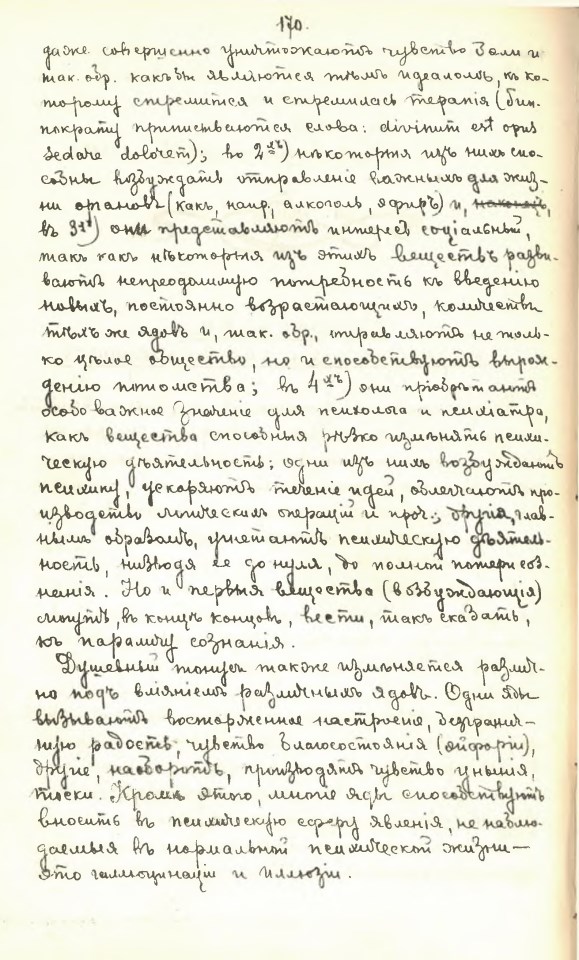 170.
даже совершенно уничтожаютъ чувство боли и
так. обр. какъ бы являются тѣмъ идеаломъ, къ ко-
торому стремится и стремилась терапія (Гип-
пократу приписываются слова: divinum est opus
sedare dolorem); во 2хъ) нѣкоторыя изъ нихъ спо-
собны возбуждать отправленіе важныхъ для жиз-
ни органовъ (какъ, напр., алкоголь, эфиръ) и, наконецъ,
въ 3хъ) они представляютъ интересъ соціальный,
такъ какъ нѣкоторыя изъ этихъ веществъ разви-
ваютъ непреодолимую потребность къ введенію
новыхъ, постоянно возрастающихъ, количествъ
тѣхъ же ядовъ и, так. обр., отравляютъ не толь-
ко цѣлое общество, но и способствуютъ вырож-
денію потомства; въ 4хъ) они пріобрѣтаютъ
особо важное значеніе для психолога и психіатра,
какъ вещества способныя рѣзко измѣнять психи-
ческую дѣятельность: одни изъ нихъ возбуждаютъ
психику, ускоряютъ теченіе идей, облегчаютъ про-
изводство логическихъ операцій и проч.; другія, глав-
нымъ образомъ, угнетаютъ психическую дѣятель-
ность, низводя ее до нуля, до полной потери соз-
нанія. Но и первыя вещества (возбуждающія)
смогутъ, въ концѣ концовъ, вести, такъ сказать,
къ параличу сознанія.
Душевный тонусъ также измѣняется различ-
но подъ вліяніемъ различныхъ ядовъ. Одни яды
вызываютъ восторженное настроеніе, безгранич-
ную радость, чувство благосостоянія (эйфорія),
другіе, наоборотъ, производятъ чувство унынія,
тоски. Кромѣ этого, многіе яды способствуютъ
вносить въ психическую сферу явленія, не наблю-
даемыя въ нормальной психической жизни—
это галлюцинаціи и иллюзіи.